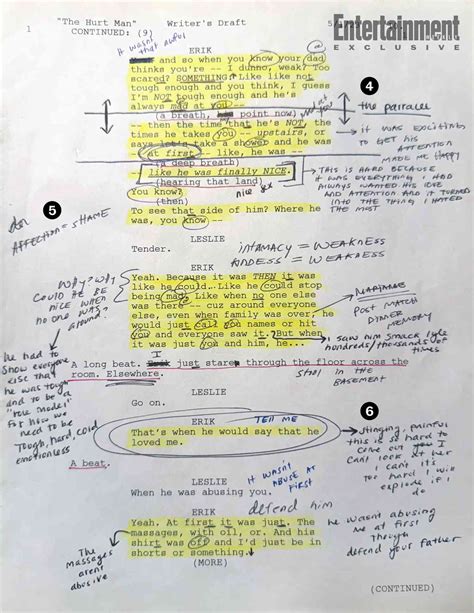 Entertainment
EXCLUSIVE
"The Hurt Man" Writer's Draft
1 CONTINUED: (9)
It wasn't
that awful
ERIK
and so when you know your dad
thinks you're -- I dunno, weak? Too
scared? SOMETHING! Like like not
tough enough and you think, I guess
I'm NOT tough enough and he's
always mad at you --
(a breath, point now)
-- then the time that he's NOT, the
times he takes you -- upstairs, or
says let's take a shower and he was
at first -- like, he was --
(a deep breath)
-- like he was finally NICE.
(hearing that land)
You know?
(then)
To see that side of him? Where he
was, you know --
4
the parallel
IT WAS EXCITING
TO GET HIS
ATTENTION
MADE ME HAPPY
THIS IS HARD BECAUSE
IT WAS EVERYTHING I HAD
ALWAYS WANTED HIS LOVE
AND ATTENTION AND IT TURNED
INTO THE THING I HATED
THE MOST
5
AFFECTION = SHAME
LESLIE
Tender.
INTIMACY = WEAKNESS
KINDNESS = WEAKNESS
ERIK
Yeah. Because it was THEN it was
like he could.. Like he could stop
being mad. Like when no one else
was there -- cuz around everyone
else, even when family was over, he
would just call you names or hit
you and everyone saw it. But when
it was just you and him, he...
WHY? WHY
COULD HE BE
NICE WHEN
NO ONE WAS
around?
POST MATCH
DINNER
MEMORY
I SAW HIM SMACK LYLE
hundreds/thousands of
times
he had to
Show everyone
else that
he was tough
and to be a
"role model"
For how we
need to be
Tough, hard, cold
emotionless
A long beat. I just stare through the floor across the
room. Elsewhere.
IN THE
BASEMENT
LESLIE
Go on.
6
ERIK
TELL ME
That's when he would say that he
loved me.
Stinging, painful
this is so hard to
Come out
Can't look at her
I can't its
too hard I will
explode if I
do
A beat.
LESLIE
When he was abusing you.
It WASN'T
ABUSE AT
FIRST
ERIK
defend him
Yeah. At first it was just. The
massages, with oil, or. And his
shirt was off and I'd just be in
shorts or something.
(MORE)
he wasn't abusing
me at first
defend your father
The
massages
aren't
abusive
(CONTINUED)